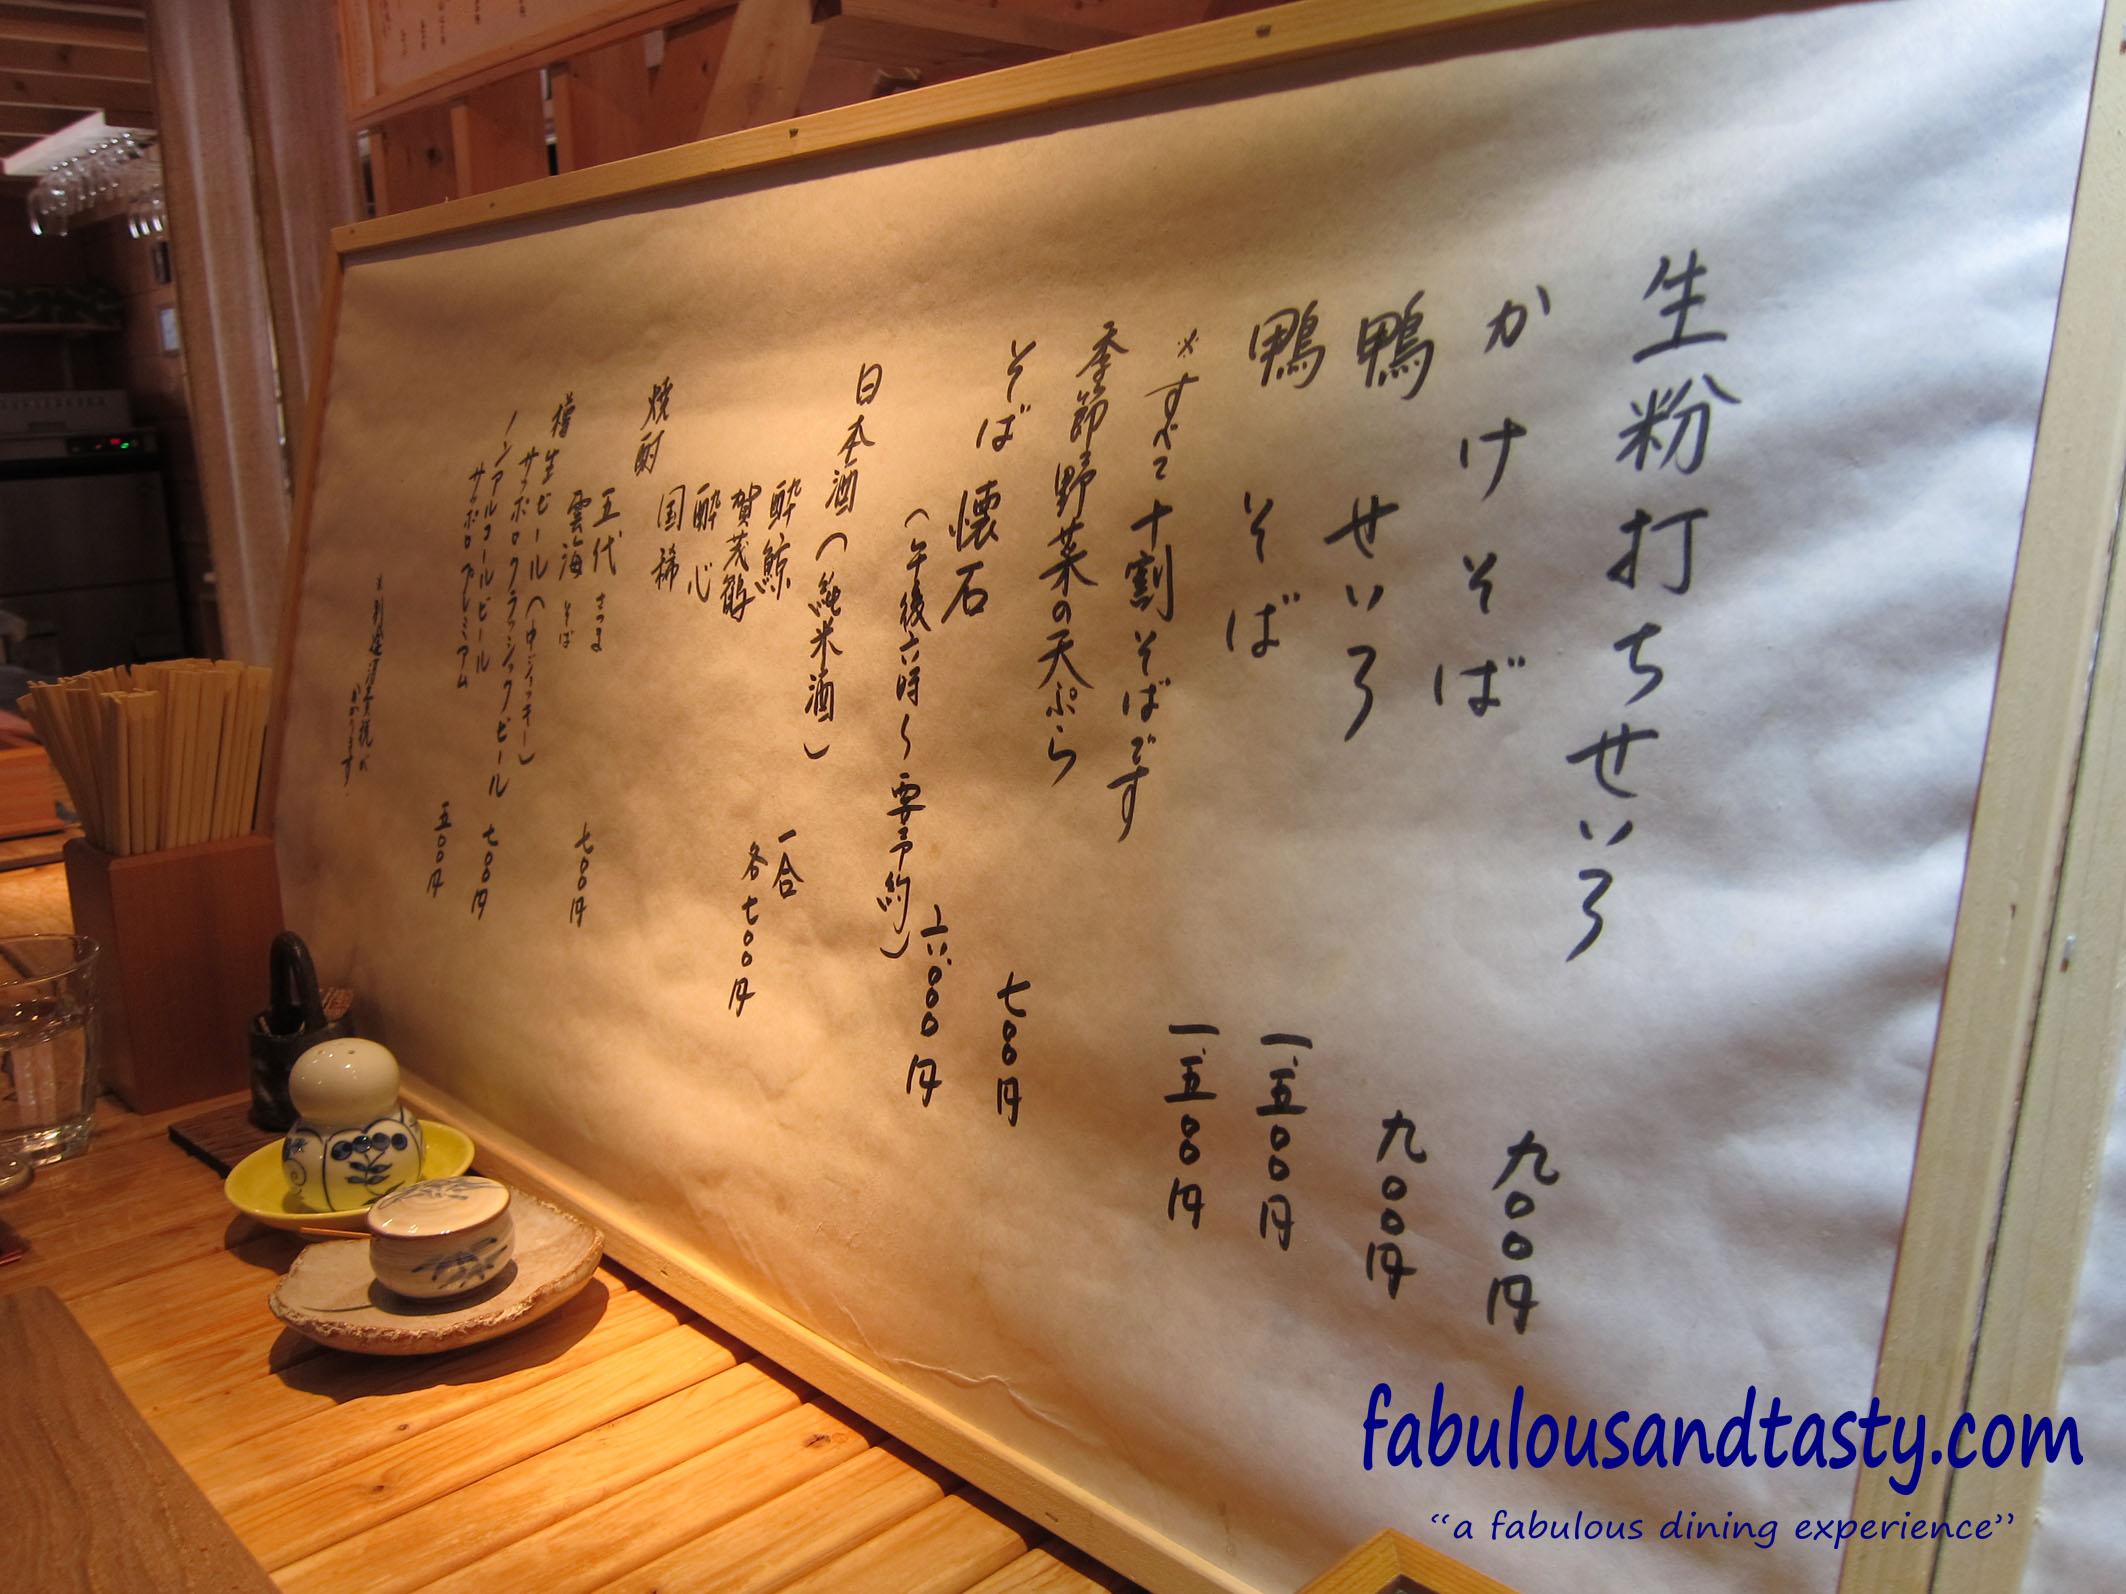 生粉打ちせいろ 九〇〇円
かけそば 九〇〇円
鴨せいろ 一、五〇〇円
鴨そば 一、五〇〇円
※すべて十割そばです
季節野菜の天ぷら 七〇〇円
そば懐石 六、〇〇〇円
（午後六時〜要予約）
日本酒（純米酒） 一合
酔鯨 各七〇〇円
賀茂鶴
酔心
国稀
焼酎
五代 さつま
雲海 そば 七〇〇円
樽生ビール（中ジョッキー）
サッポロクラシックビール 七〇〇円
ノンアルコールビール
サッポロプレミアム 五〇〇円
※別途消費税が
かかります
fabulousandtasty.com
“a fabulous dining experience”